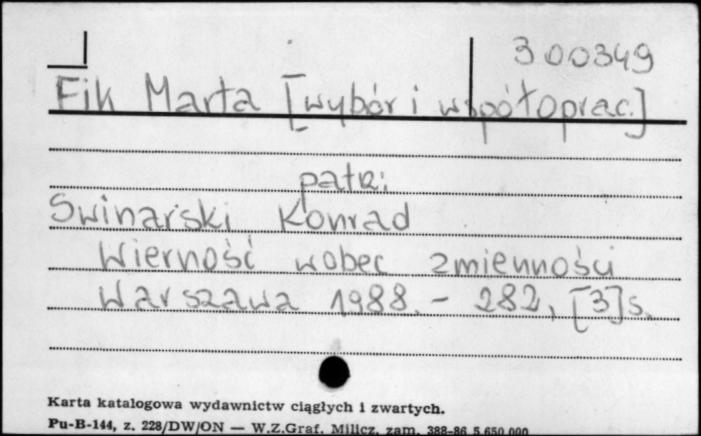 300349
Fik Marta [wybór i współoprac.]
patrz:
Swinarski Konrad
Wierność wobec zmienności
Warszawa 1988. - 282, [3] s.
Karta katalogowa wydawnictw ciągłych i zwartych.
Pu-B-144, z. 228/DW/ON — W.Z.Graf. Milicz, zam. 388-86 5.650.000